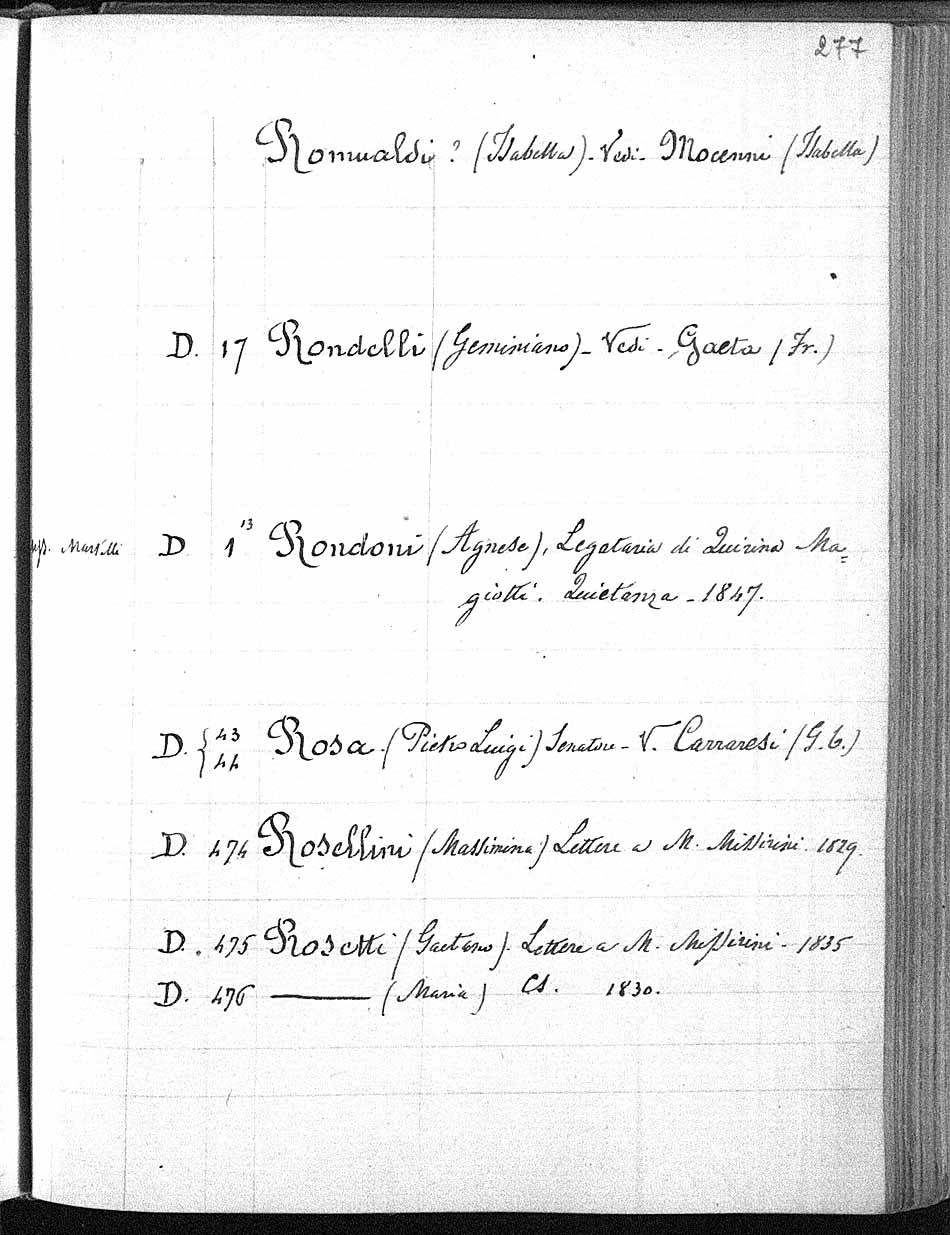 277
Romualdi ? (Isabella) - Vedi - Mocenni (Isabella)
D. 17 Rondelli (Geminiano) - Vedi - Gaeta (Fr.)
Martelli D 1 13 Rondoni (Agnese), Legataria di Quirina Ma=
giotti. Quietanza - 1847.
D. { 43 Rosa (Pietro Luigi) Senatore - V. Carraresi (G. C.)
44
D. 474 Rosellini (Massimina) Lettere a M. Missirini 1829.
D. 475 Rosetti (Gaetano). Lettere a M. Missirini - 1835
D. 476 ——— (Maria) CS. 1830.